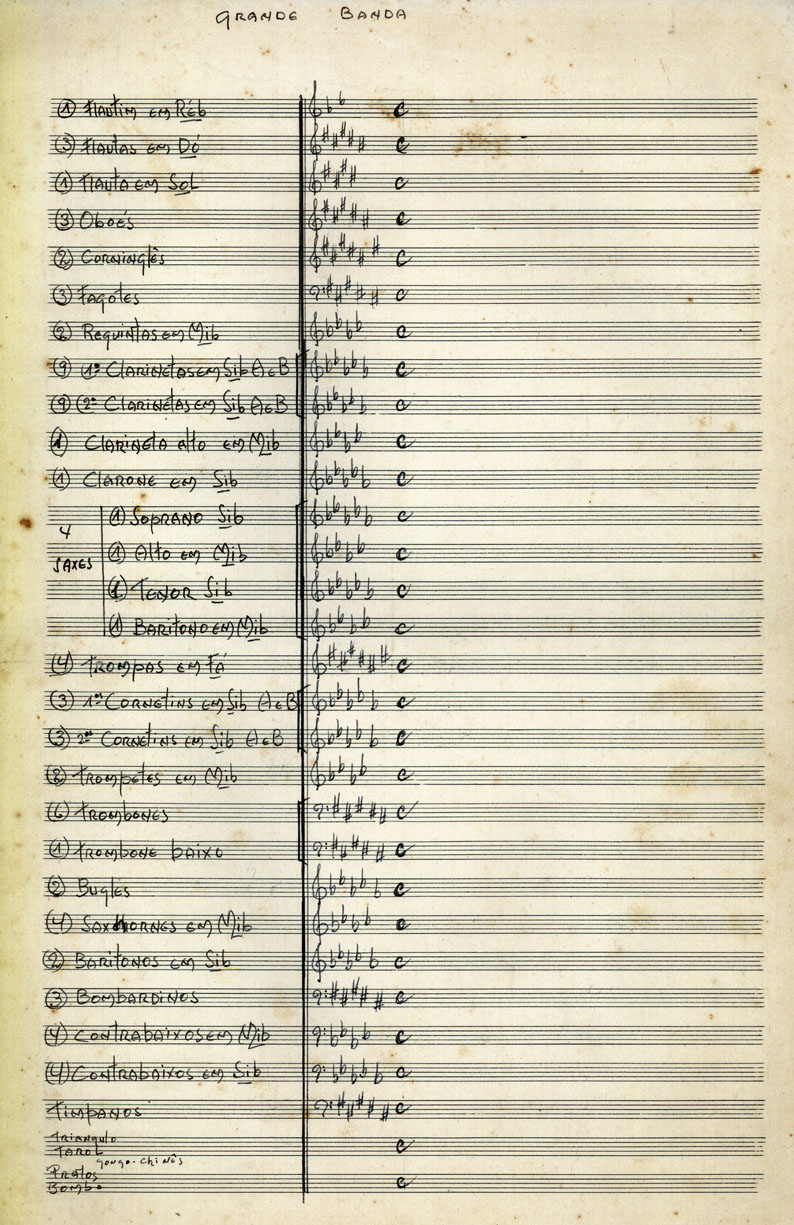 GRANDE BANDA
① Flautim em Réb
③ Flautas em Dó
① Flauta em Sol
③ Oboés
② Corninglês
③ Fagotes
② Requintas em Mib
⑨ 1ᵒˢ Clarinetas em Sib A e B
⑨ 2ᵒˢ Clarinetas em Sib A e B
① Clarineta alto em Mib
① Clarone em Sib
4 SAXES
① Soprano Sib
① Alto em Mib
① Tenor Sib
① Baritono em Mib
(4) Trompas em Fá
(3) 1ᵒˢ Cornetins em Sib A e B
(3) 2ᵒˢ Cornetins em Sib A e B
② Trompetes em Mib
(6) Trombones
① Trombone baixo
② Bugles
(4) Saxhornes em Mib
② Barítonos em Sib
③ Bombardinos
(4) Contrabaixos em Mib
(4) Contrabaixos em Sib
Timpanos
Triangulo
Tarol
gongo-chinês
Pratos
Bombo